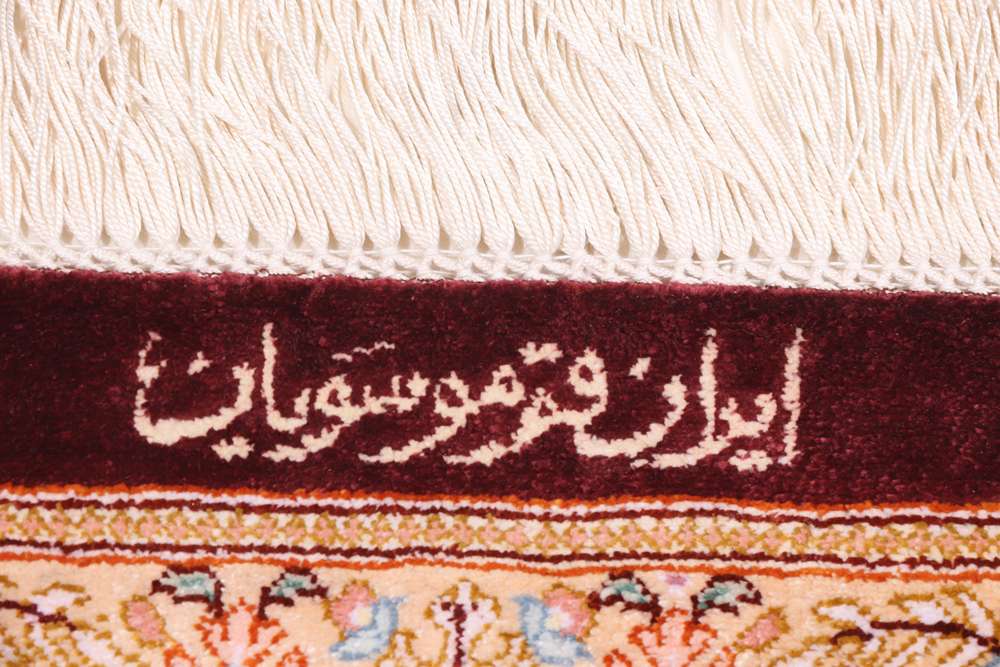 ایران قم موسویان